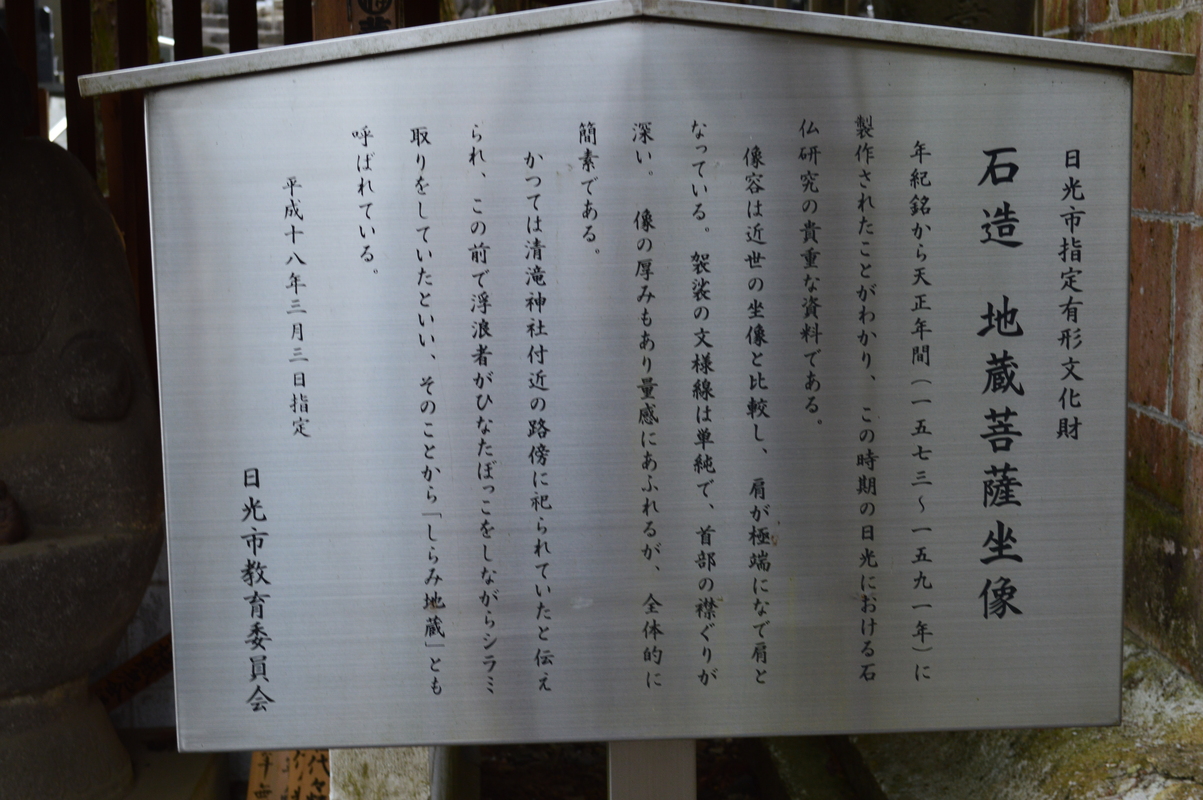 日光市指定有形文化財
石造　地蔵菩薩坐像
年紀銘から天正年間（一五七三～一五九一年）に
製作されたことがわかり、この時期の日光における石
仏研究の貴重な資料である。
像容は近世の坐像と比較し、肩が極端になで肩と
なっている。袈裟の文様線は単純で、首部の襟ぐりが
深い。　像の厚みもあり量感にあふれるが、全体的に
簡素である。
かつては清滝神社付近の路傍に祀られていたと伝え
られ、この前で浮浪者がひなたぼっこをしながらシラミ
取りをしていたといい、そのことから「しらみ地蔵」とも
呼ばれている。
平成十八年三月三日指定
日光市教育委員会